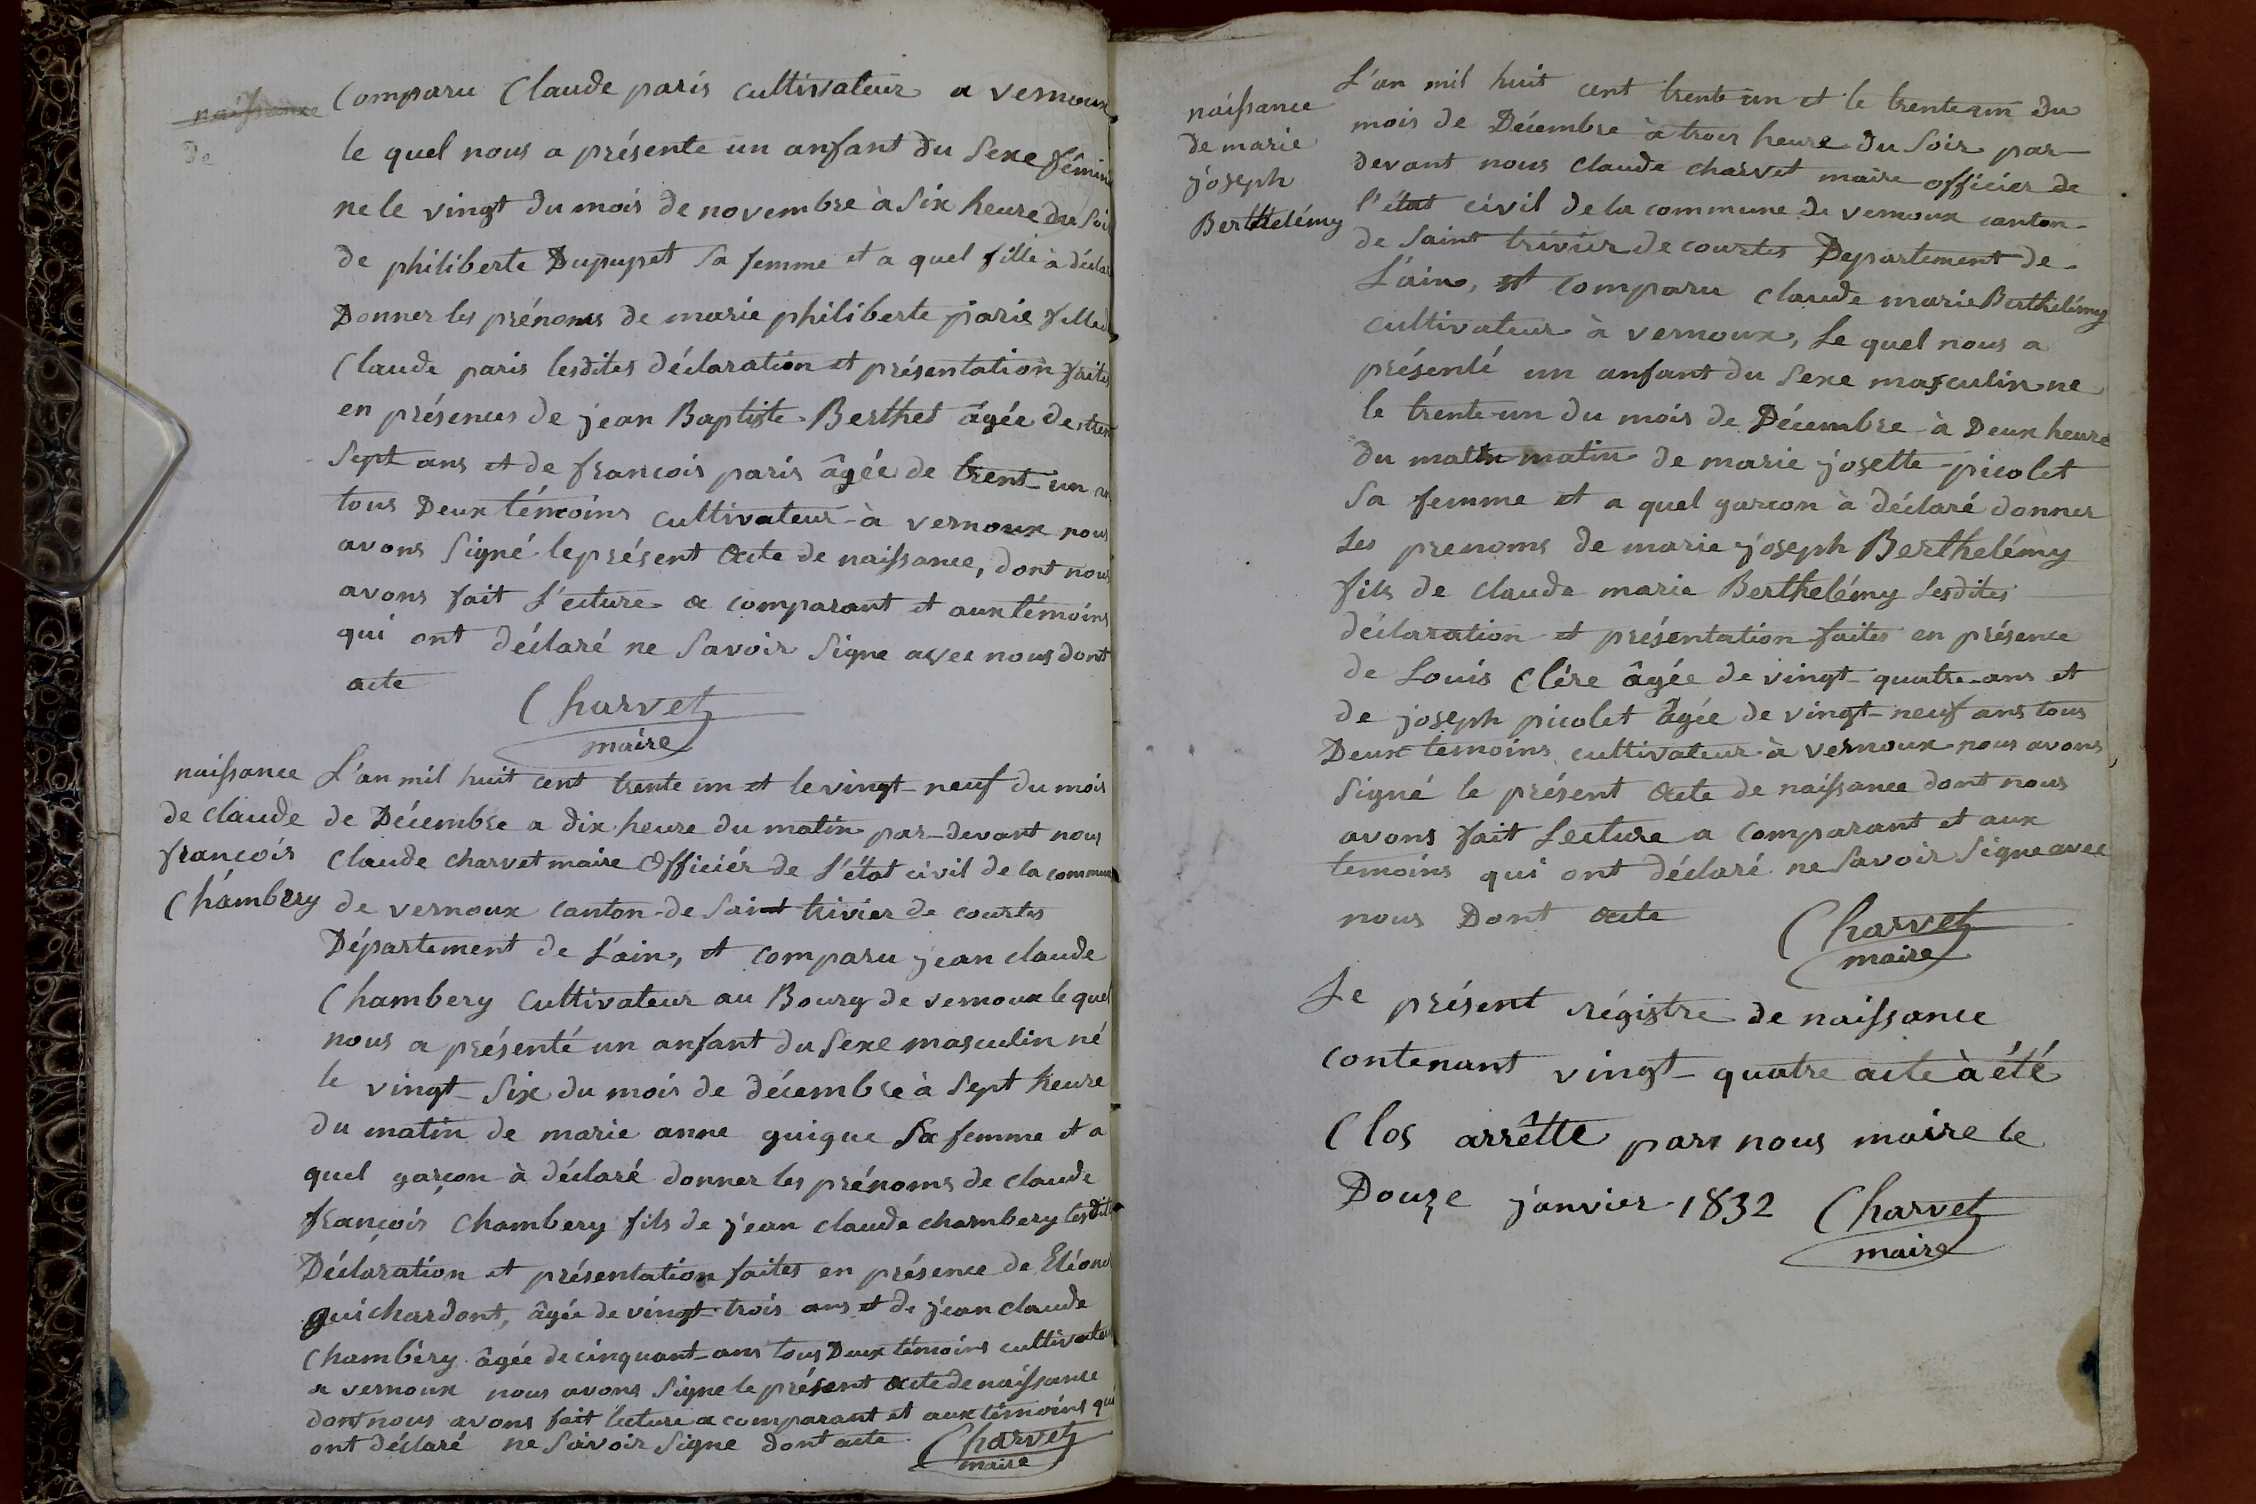 naissance
De
Comparu Claude paris cultivateur a vernoux
le quel nous a présente un anfant du Sexe féminin
ne le vingt du mois de novembre à Six heure du Soir
de philiberte Dupupet Sa femme et a quel fille à déclar
Donner les prénoms de marie philiberte paris fille de
Claude paris lesdites déclaration et présentation faites
en présences de jean Baptiste Berthet âgée de trent
Sept ans et de francois paris âgée de trent un
tous Deux témoins cultivateur à vernoux nous
avons Signé le présent Acte de naissance, dont nous
avons fait L'ecture a comparant et aux témoins
qui ont déclaré ne Savoir Signe avec nous dont
acte
Charvet
maire
naissance
de claude
francois
Chambery
L'an mil huit cent trente un et le vingt neuf du mois
de Décembre a dix heure du matin par-devant nous
Claude charvet maire Officier de L'état civil de la commun
de vernoux canton de Saint trivier de courtes
Département de L'ain, et comparu jean claude
Chambery Cultivateur au Bourg de vernoux le quel
nous a présenté un anfant du Sexe masculin né
le vingt Six du mois de décembre à Sept heure
du matin de marie anne guigue Sa femme et a
quel garçon à déclaré donner les prénoms de claude
françois Chambery fils de jean claude chambery lesdite
Déclaration et présentation faites en présence de Eléonor
guichardont, âgée de vingt trois ans et de jean claude
Chambéry âgée de cinquant ans tous Deux témoins cultivateur
a vernoux nous avons Signe le présent Acte de naissance
dont nous avons fait lecture a comparant et aux témoins qui
ont déclaré ne Savoir Signe dont acte
Charvet
maire
naissance
de marie
joseph
Berthelémy
L'an mil huit cent trente un et le trente un du
mois de Décembre à trois heure du Soir par
devant nous claude charvet maire officier de
l'état civil de la commune de vernoux canton
de Saint trivier de courtes Departement de
L'ain, et comparu claude marie Berthelémy
cultivateur à vernoux, Le quel nous a
présenté un anfant du Sexe masculin ne
le trente un du mois de Décembre à Deux heure
du matin matin de marie josette picolet
Sa femme et a quel garcon à déclaré donner
Les prenoms de marie joseph Berthelémy
fils de claude marie Berthelémy Lesdites
déclaration et présentation faites en présence
de Louis Clére âgée de vingt quatre ans et
de joseph picolet âgée de vingt neuf ans tous
Deux temoins cultivateur à vernoux nous avons
Signé le présent Acte de naissance dont nous
avons fait Lecture a comparant et aux
temoins qui ont déclaré ne Savoir Signe avec
nous Dont acte
Charvet
maire
Le présent régistre de naissance
contenant vingt quatre acte à été
Clos arrêtte par nous maire le
Douze janvier 1832
Charvet
maire